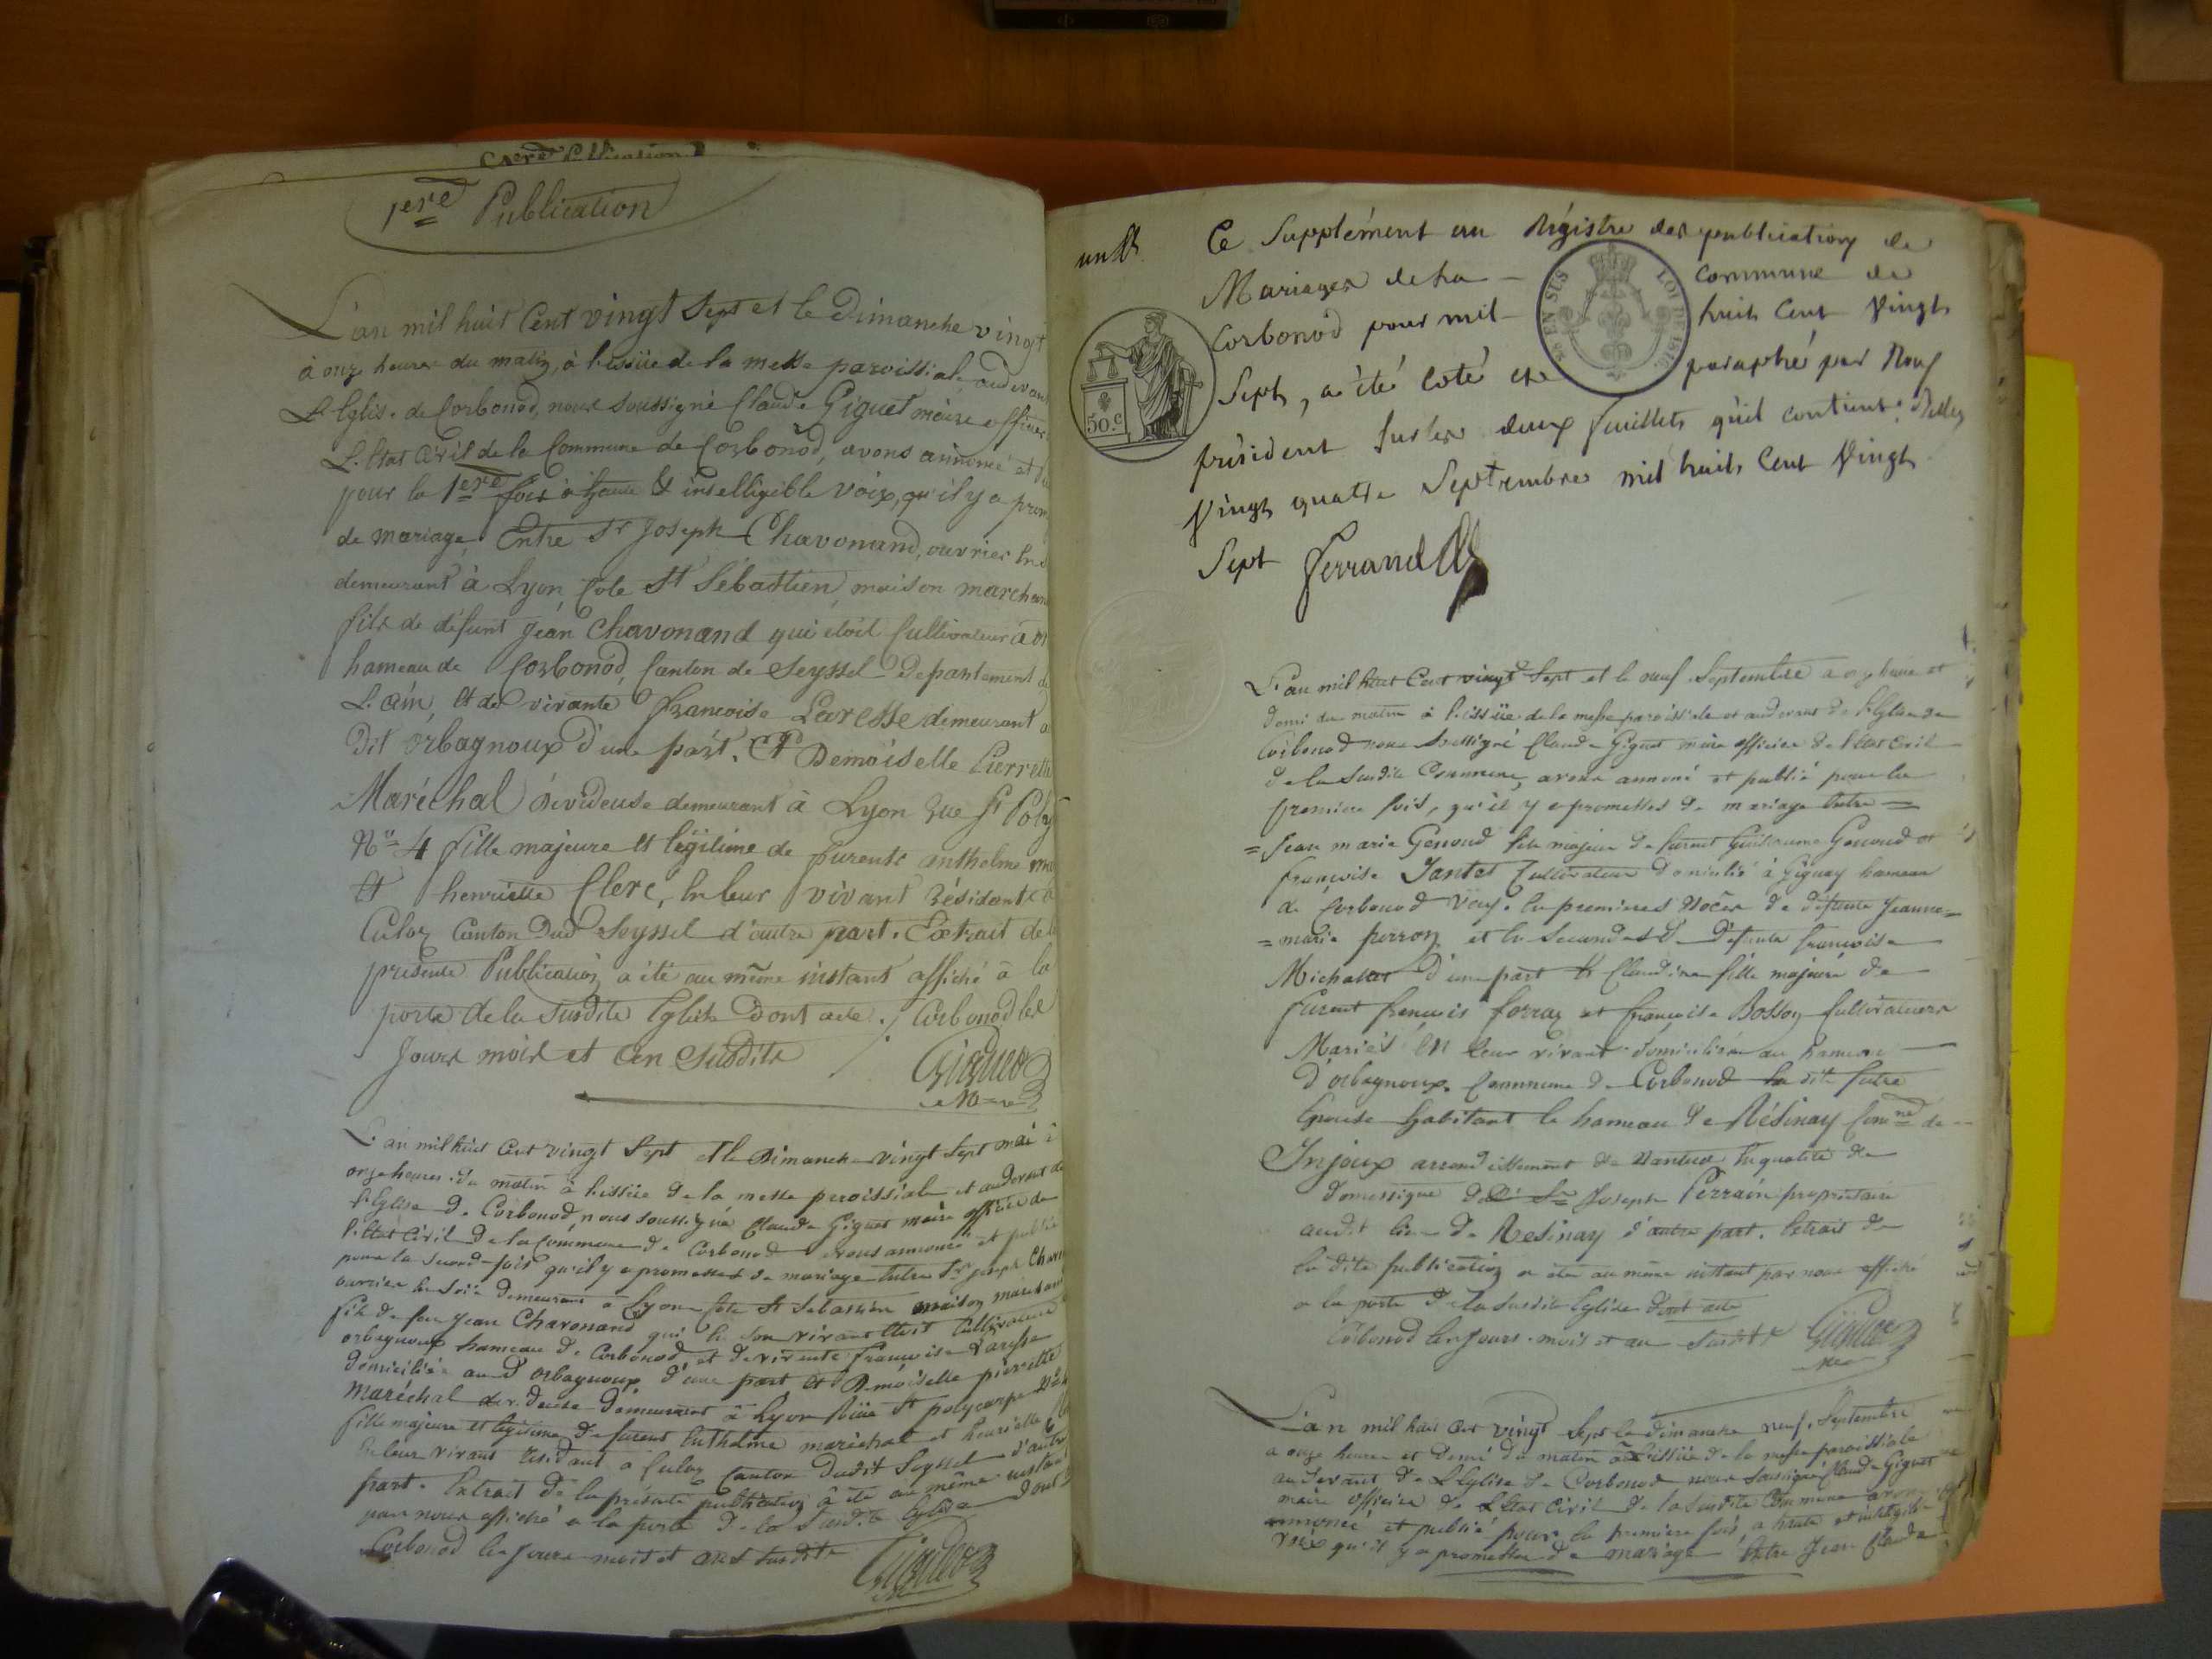 1ere Publication
L'an mil huit Cent vingt Sept et le Dimanche vingt
à onze heures du matin, à l'issüe de la messe paroissiale, au devant
L'Eglise de Corbonod, nous soussigné Claude Giguet maire officier
L'Etat Civil de la Commune de Corbonod, avons annoncé et
pour la 1ere fois à haute & intelligible voix, qu'il y a prom
de mariage Entre Sr Joseph Chavonand, ouvrier En s
demeurant à Lyon, Cote St Sébastien, maison marchand
fils de défunt Jéan Chavonand qui étoit Cultivateur à or
hameau de Corbonod, Canton de Seyssel Département de
L'ain, Et de vivante Françoise Laresse demeurant a
Dit orbagnoux d'une part. Et Demoiselle Pierrette
Maréchal Dévideuse demeurant à Lyon Rue St Poly
No 4 fille majeure Et légitime de furents anthelme ma
Et henriette Clerc, En leur vivant Résidants à
Culoz Canton Dud Seyssel d'autre part. Extrait de l
présente Publication a été au même instant affiché à la
porte de la susdite Eglise Dont acte. / Corbonod les
Jours mois et an susdits
Giguet
L'an mil huit Cent vingt Sept et le Dimanche vingt Sept mai à
onze heures du matin à l'issüe de la messe paroissiale et au devant de
l'Eglise de Corbonod, nous soussigné Claude Giguet maire officier de
l'Etat Civil de la Commune de Corbonod avons annoncé et publié
pour la second fois qu'il y a promesses de mariage Entre Sr joseph Chavo
ouvrier En Soie Demeurant à Lyon Cote St Sebastien maison marchand
fils de feu Jean Chavonand qui En son vivant Etoit Cultivateur
orbagnoux hameau de Corbonod et de vivante Françoise Laresse
domiciliée aud orbagnoux d'une part Et Demoiselle pierrette
Maréchal dévideuse Demeurant à Lyon Rüe St polycarpe
fille majeure et légitime de furent Enthelme maréchal et henriette
En leur vivant Résidant à Culoz Canton Dudit Seyssel d'autre
part. Extrait de la présente publication a été au même instant
par nous affiché a la porte de la susdite Eglise Dont
Corbonod les Jours mois et an susdits
Giguet
un
Ce Supplément au Régistre des publications de
Mariages de la commune de
Corbonod pour mil huit Cent Vingt
Sept, a été coté et paraphé par Nous
président Sur les deux feuillets qu'il contient. Belley
Vingt quatre Septembre mil huit Cent Vingt
Sept Ferrand
50.c
EN SUS
LOI DE 1816
L'an mil huit Cent vingt Sept et le neuf Septembre a onze heure et
demi du matin à l'issüe de la messe paroissiale et au devant de l'Eglise de
Corbonod nous soussigné Claude Giguet maire officier de l'Etat Civil
de la susdite Commune, avons annoncé et publié pour la
première fois, qu'il y a promesses de mariage Entre =
= Jean marie Genoud fils majeur de furent Guillaume Genoud et
françoise Jantet Cultivateur domicilié à Gignay hameau
de Corbonod Veuf en premières Nôces de défunte Jeanne=
= marie perron et En Secondes de Défunte françoise
Michallet d'une part Et Claudine fille majeure de
furent françois forray et françoise Bosson Cultivateurs
Mariés En leur vivant domiciliés au hameau
d'orbagnoux, Commune de Corbonod la dite future
Epouse habitant le hameau de Résinay Comne de
Injoux arrondissement de Nantua En qualité de
domestique de Sr Joseph Perrain propriétaire
audit lieu de Résinay d'autre part. Extrait de
la dite publication a été au même instant par nous affiché
a la porte de la susdite Eglise dont acte
Corbonod les Jours mois et an susdits Giguet
L'an mil huit Cent vingt Sept le dimanche neuf Septembre
a onze heures et Demi du matin à l'issüe de la messe paroissiale
au devant de L'Eglise de Corbonod nous soussigné Claude Giguet
maire officier de L'Etat Civil de la susdite Commune avons
annoncé et publié pour la première fois, a haute et intelligible
voix qu'il y a promesses de mariage Entre Jean Claude